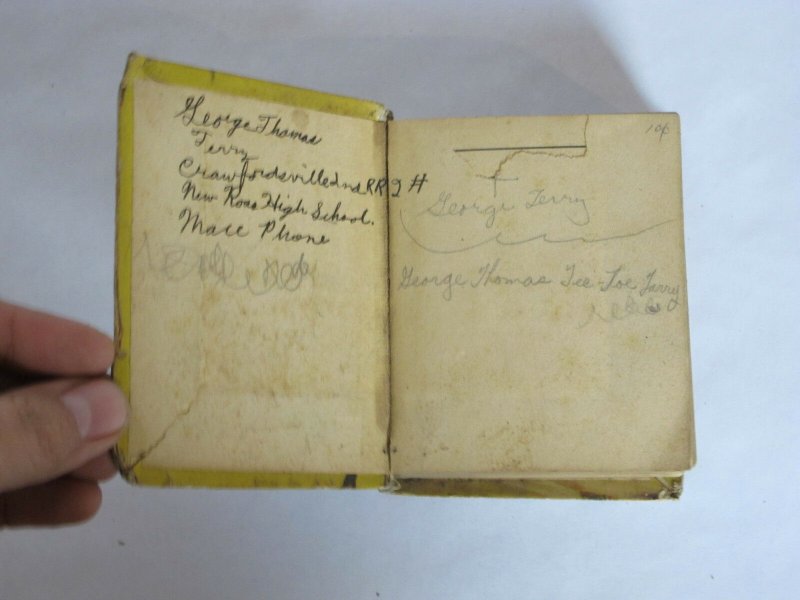 George Thomas
Terry
Crawfordsville Ind RR 2 #
New Ross High School.
Mace Phone
10¢
George Terry
George Thomas Tee-Toe Terry